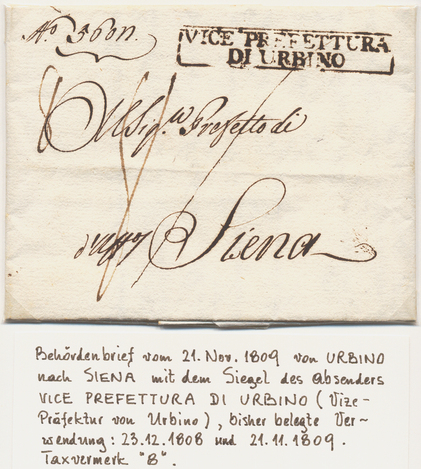 No 5601.
VICE PREFETTURA
DI URBINO
Al Sig.r Prefetto di
Siena
Behördenbrief vom 21. Nov. 1809 von URBINO
nach SIENA mit dem Siegel des Absenders
VICE PREFETTURA DI URBINO (Vize-
Präfektur von Urbino), bisher belegte Ver-
wendung: 23.12.1808 und 21.11.1809.
Taxvermerk "8".